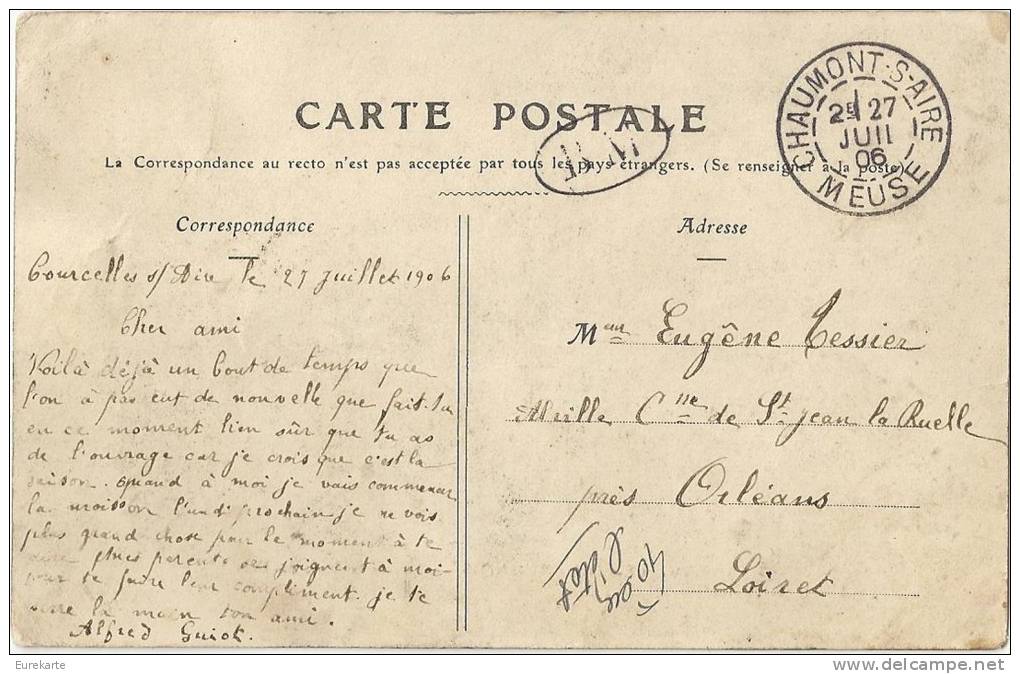 CARTE POSTALE
La Correspondance au recto n'est pas acceptée par tous les pays étrangers. (Se renseigner à la poste)
CHAUMONT-S-AIRE
2E 27
JUIL
06
MEUSE
Correspondance
Courcelles s/ Aire le 27 juillet 1906
Cher ami
Voilà déjà un bout de temps que
l'on à pas eut de nouvelle que fait-tu
en ce moment bien sûr que tu as
de l'ouvrage car je crois que c'est la
saison. quand à moi je vais commencer
la moisson lundi prochain je ne vois
plus grand chose pour le moment à te
dire mes parents se joignent à moi
pour te faire leur compliment. je te
serre la main ton ami.
Alfred Guiot.
Adresse
Mon Eugène Tessier
C lle de St jean la Ruelle
près Orléans
Loiret
Eurekarte
delcampe.net